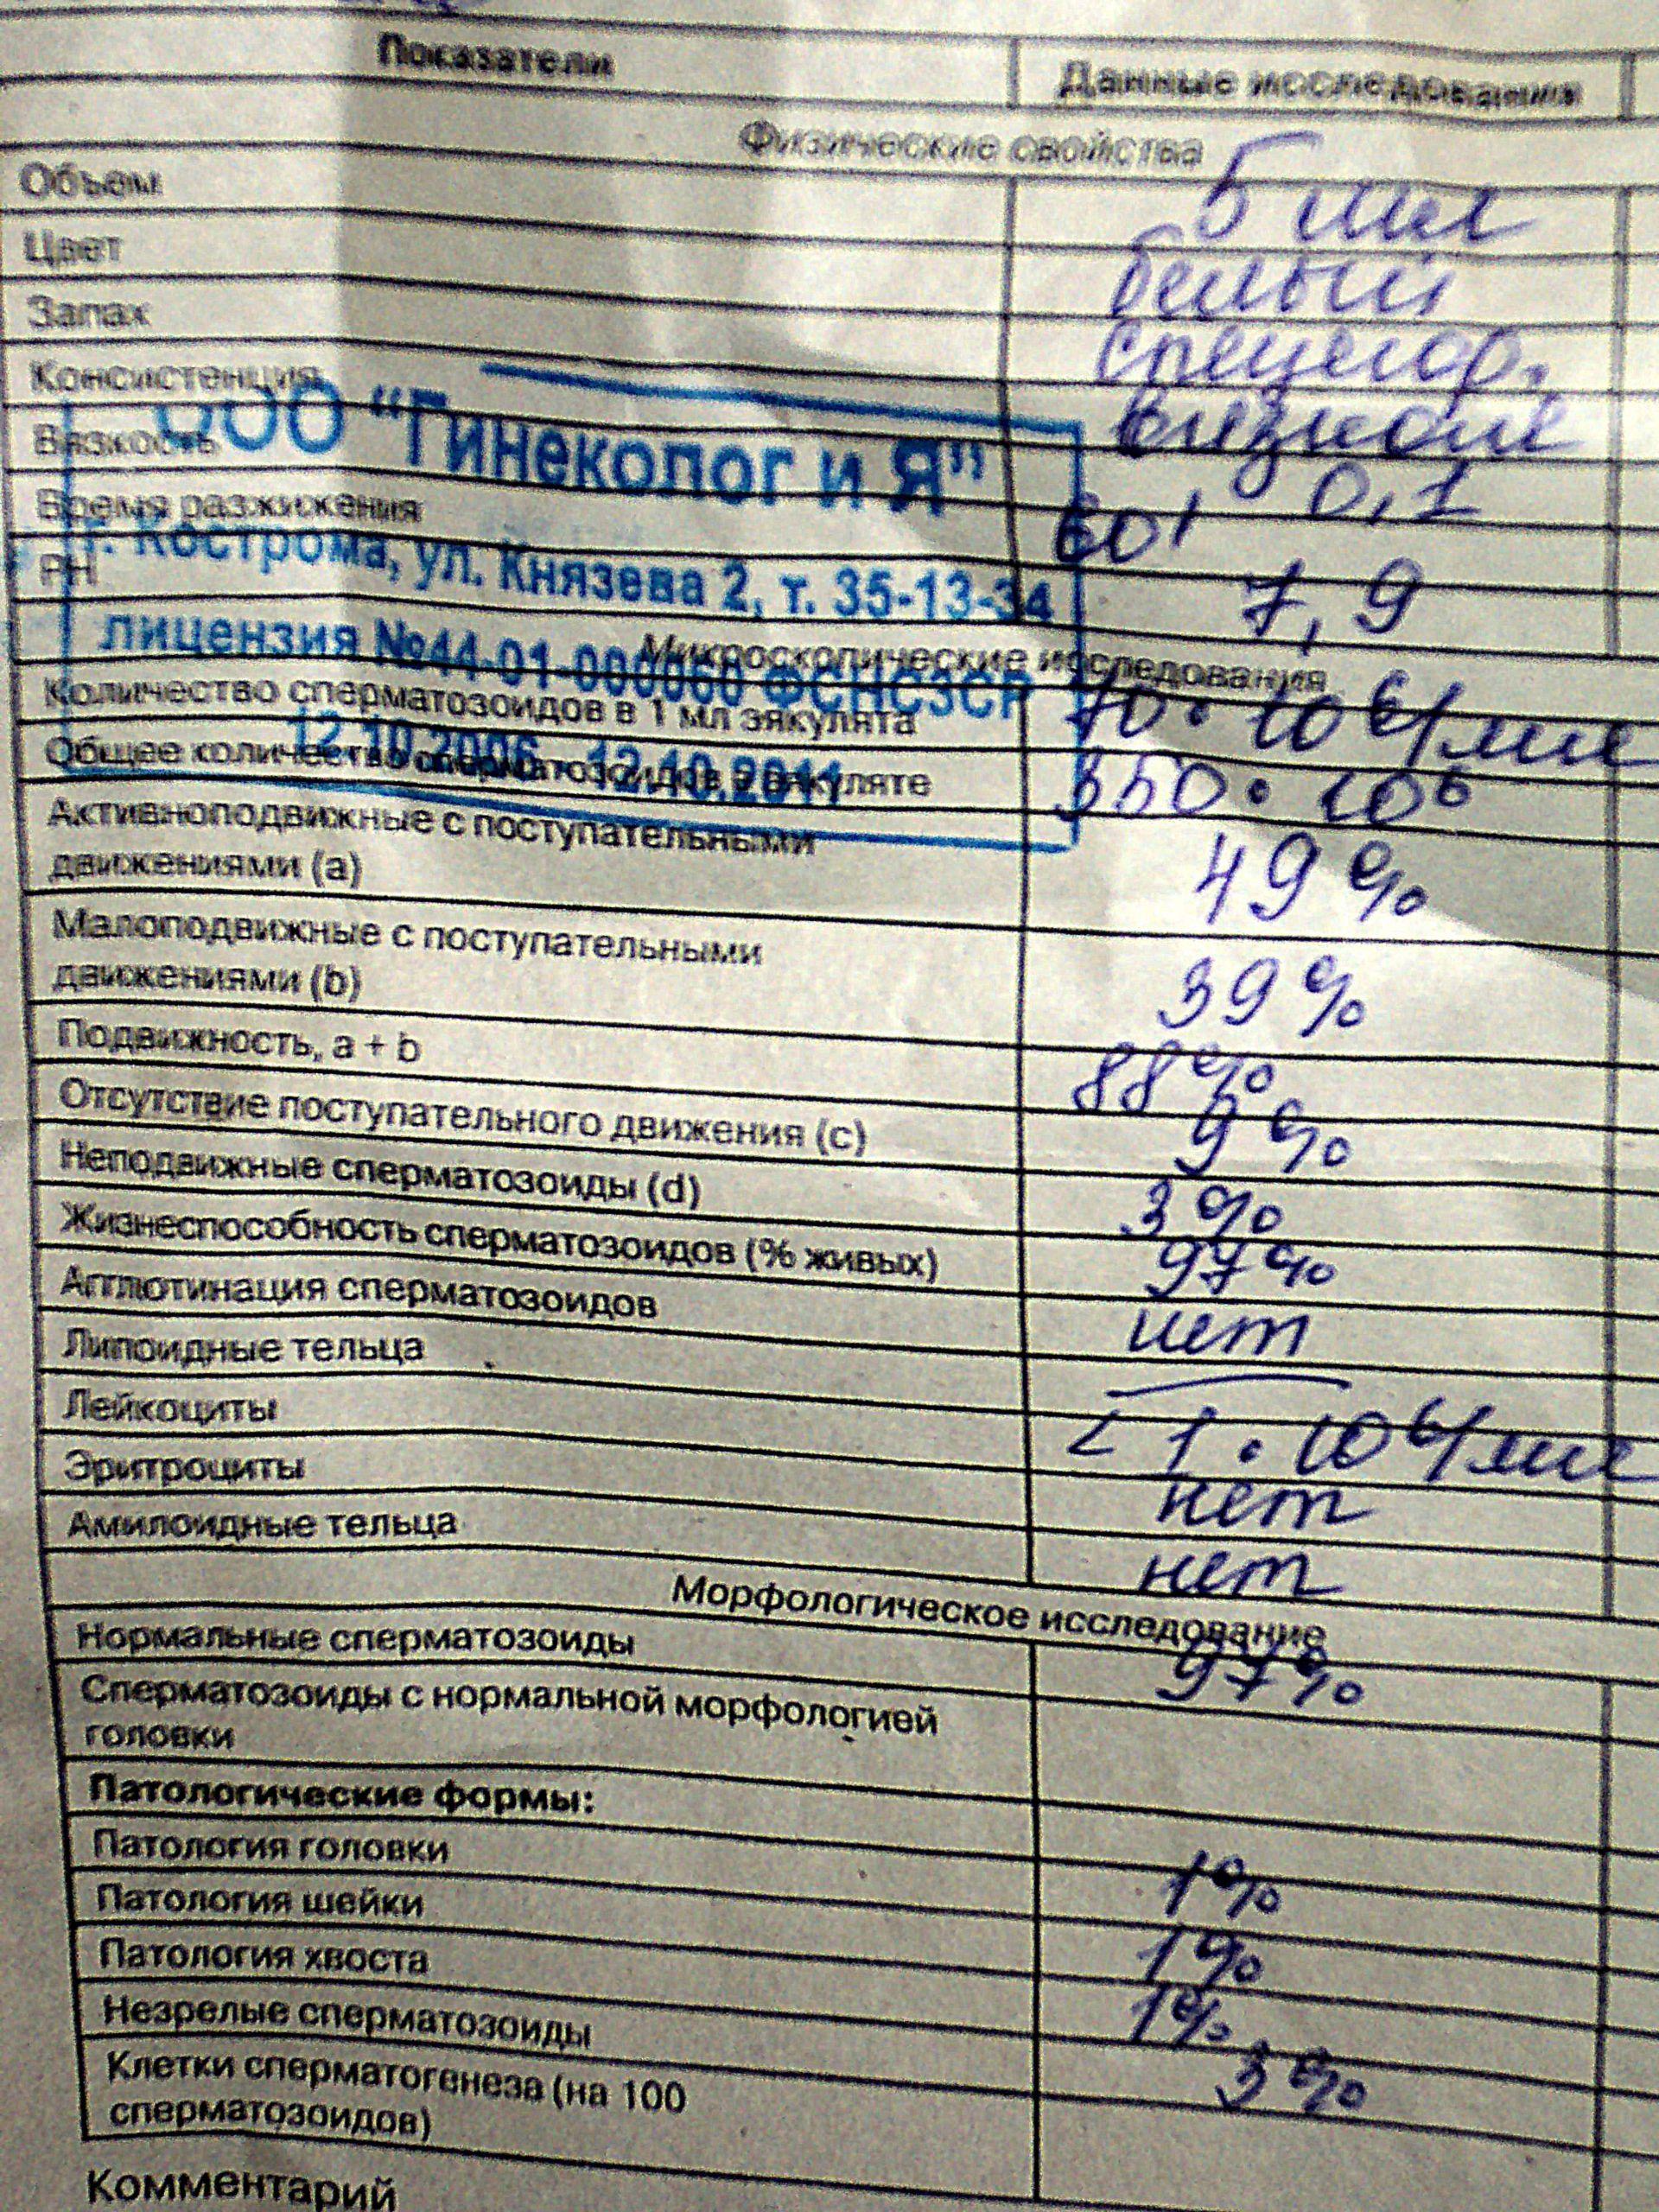 Показатели Данные исследования
Физические свойства
Объем 5 мл
Цвет белый
Запах специфр.
Консистенция вязкая
Вязкость 0,1
Время разжижения 60'
PH 7,9
ООО "Гинеколог и Я"
г. Кострома, ул. Князева 2, т. 35-13-34
лицензия №44-01-000060 ФСНСЗСР
12.10.2006 - 12.10.2011
Микроскопические исследования
Количество сперматозоидов в 1 мл эякулята 70 • 10⁶/мл
Общее количество сперматозоидов в эякуляте 350 • 10⁶
Активноподвижные с поступательными
движениями (a) 49%
Малоподвижные с поступательными
движениями (b) 39%
Подвижность, a + b 88%
Отсутствие поступательного движения (c) 9%
Неподвижные сперматозоиды (d) 3%
Жизнеспособность сперматозоидов (% живых) 97%
Агглютинация сперматозоидов нет
Липоидные тельца —
Лейкоциты < 1 • 10⁶/мл
Эритроциты нет
Амилоидные тельца нет
Морфологическое исследование
Нормальные сперматозоиды 97%
Сперматозоиды с нормальной морфологией
головки
Патологические формы:
Патология головки 1%
Патология шейки 1%
Патология хвоста 1%
Незрелые сперматозоиды 3%
Клетки сперматогенеза (на 100
сперматозоидов)
Комментарий